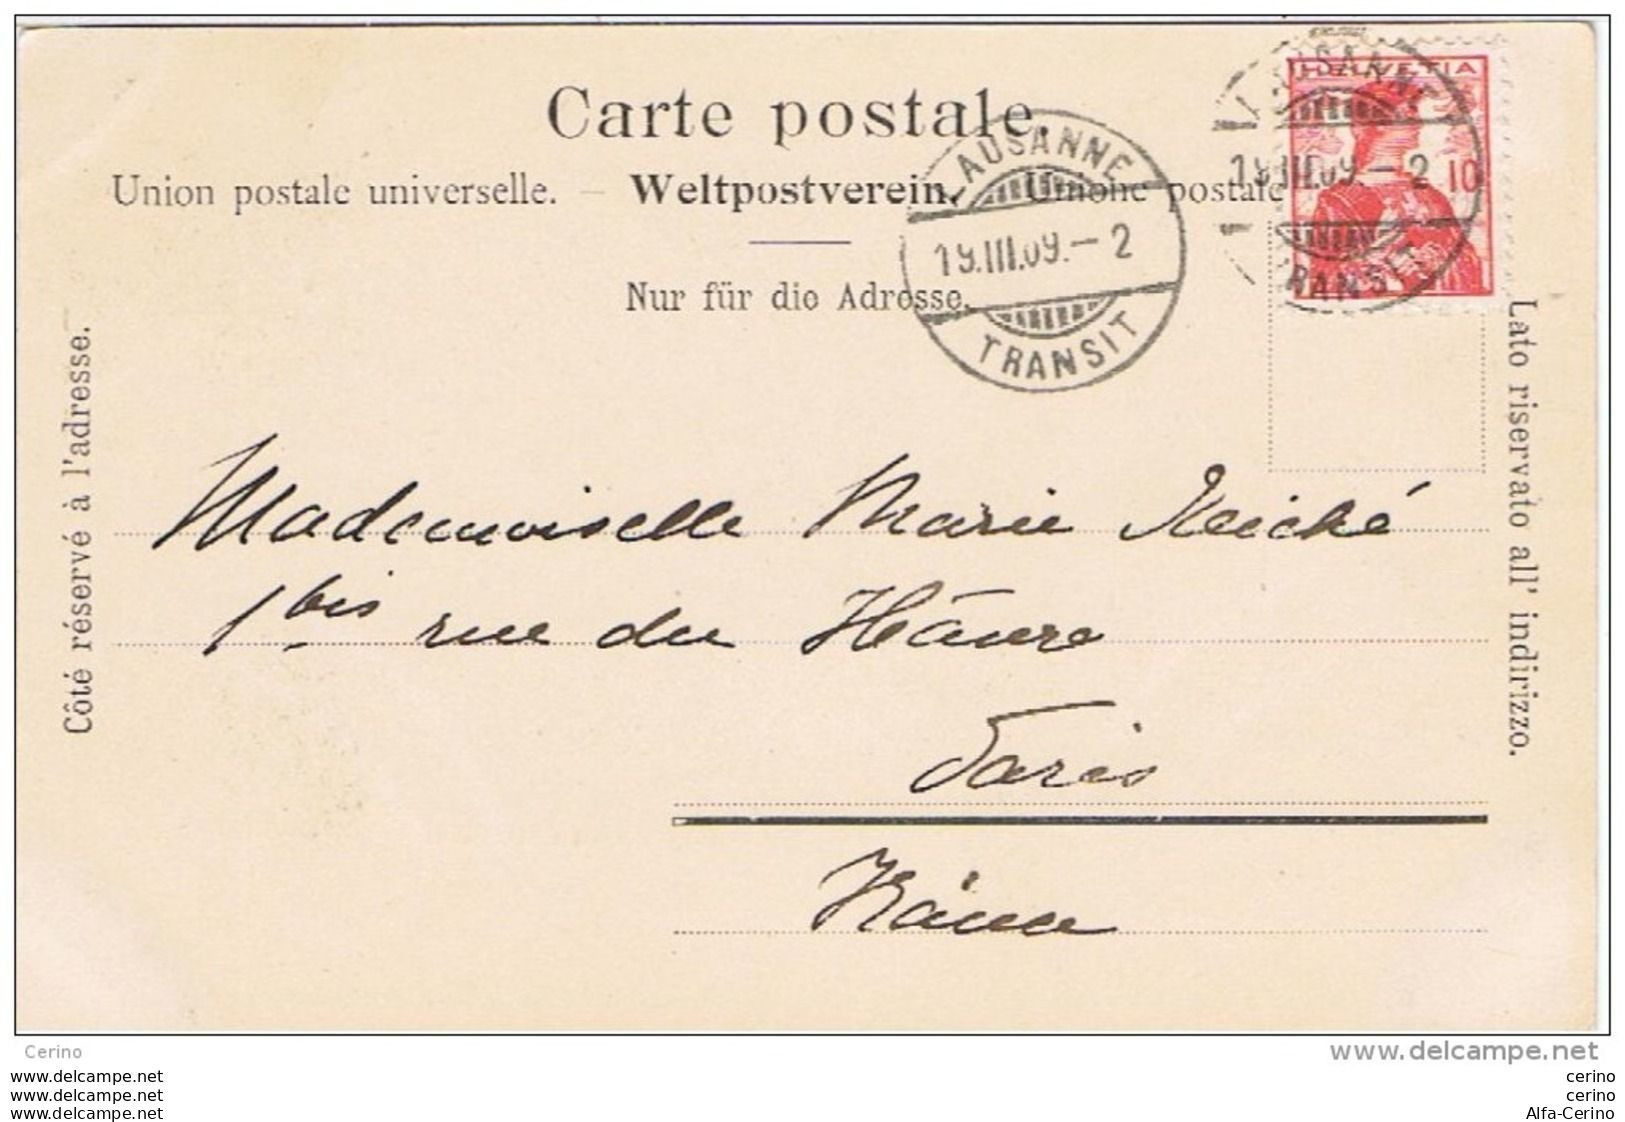 Carte postale.
HELVETIA
10
LAUSANNE
19.III.09.-2
TRANSIT
LAUSANNE
19.III.09.-2
TRANSIT
Union postale universelle. — Weltpostverein. — Unione postale
Nur für die Adresse.
Côté réservé à l'adresse.
Lato riservato all' indirizzo.
Mademoiselle Marie Reiché
1 bis rue du Hâvre
Paris
France
Cerino
www.delcampe.net
www.delcampe.net
www.delcampe.net
www.delcampe.net
cerino
cerino
Alfa-Cerino